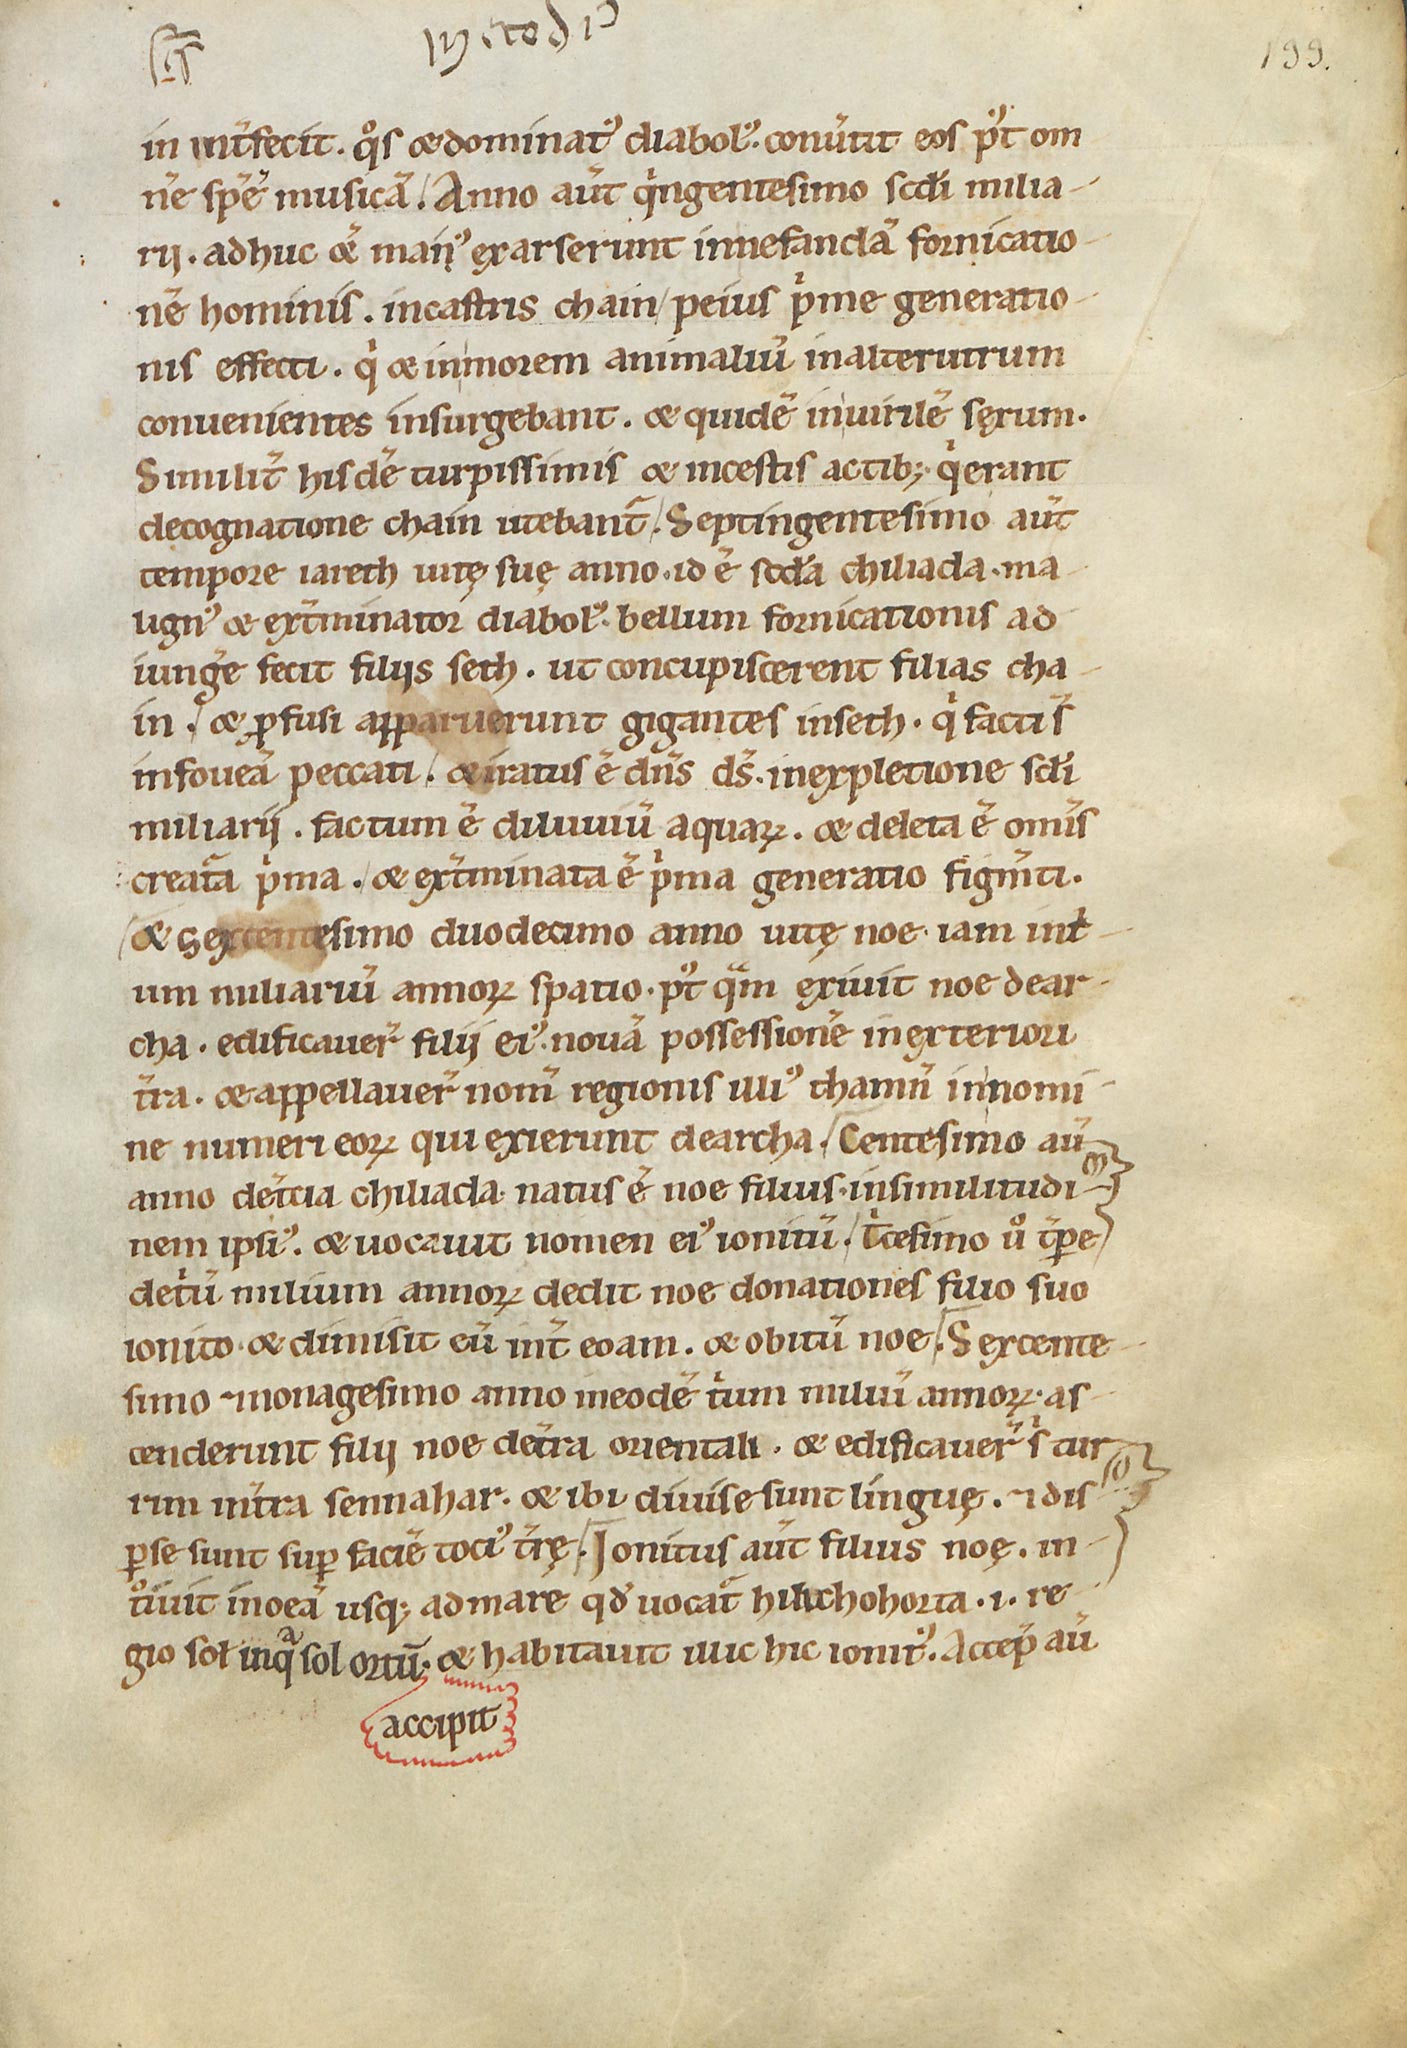 metodiꝰ
199.
in int̄fecit. qͦs & dominatꝰ diabolꝰ. conūtit eos pꝰt om
nē spēm musicā. Anno aūt qͥngentesimo scd̄i milia-
rii. adhuc & maiꝰ exarserunt innefandā fornicatio-
nē hominis. incastris chain peius pͥme generatio-
nis effecti. qͥ & inmorem animaliū inalterutrum
convenientes insurgebant. & quidē inuirilē sexum.
Similit̄ hisdē turpissimis & incestis actib; qͥerant
decognatione chain utebant̄. Septingentesimo aūt
tempore iareth uitę suę anno. id ē scd̄a chiliada. ma-
lignꝰ & ext̄minator diabolꝰ. bellum fornicationis ad
iungē fecit filiis seth. ut concupiscerent filias cha-
in. & ꝓfusi apparuerunt gigantes inseth. qͥ factis
infoueā peccati. & iratus ē dn̄s ds̄. inexpletione scd̄i
miliarii. factum ē diluuiū aquaꝝ. & deleta ē omīs
creat̄a pͥma. & ext̄minata ē pͥma generatio figm̄ti.
& sexcentesimo duodecimo anno uitę noe. iam int̄-
um miliariū annoꝝ spatio. pꝰt qᵃm exiuit noe dear-
cha. edificauer̄ filii eiꝰ. nouā possessionē inexteriori
t̄ra. & appellauer̄ nom̄ regionis illiꝰ thamn̄ innomi-
ne numeri eoꝝ qui exierunt dearcha. Centesimo aū
anno det̄tia chiliada. natus ē noe filius. insimilitudi-
nem ipsiꝰ. & uocauit nomen eiꝰ ionitū. tͥcesimo uͦ tp̄e
detͥū milium annoꝝ dedit noe donationes filio suo
ionito. & dimisit eū int̄ eoam. & obitū noe. Sexcente-
simo ⁊nonagesimo anno ineodē tͥum miliū annoꝝ. as-
cenderunt filii noe det̄ra orientali. & edificauer̄ sͥ tur
rim int̄ra sennahar. & ibi diuise sunt linguę. ⁊ dis
ꝑse sunt suꝑ faciē tociꝰ t̄rę. Ionitus aūt filius noę. in-
tͦiuit inoeā usq; admare qd̄ uocat̄ hilichohorta. i. re-
gio sol inqᵃ sol ortū. & habitauit illic hic ionitꝰ. Accep̄ aū
accipit